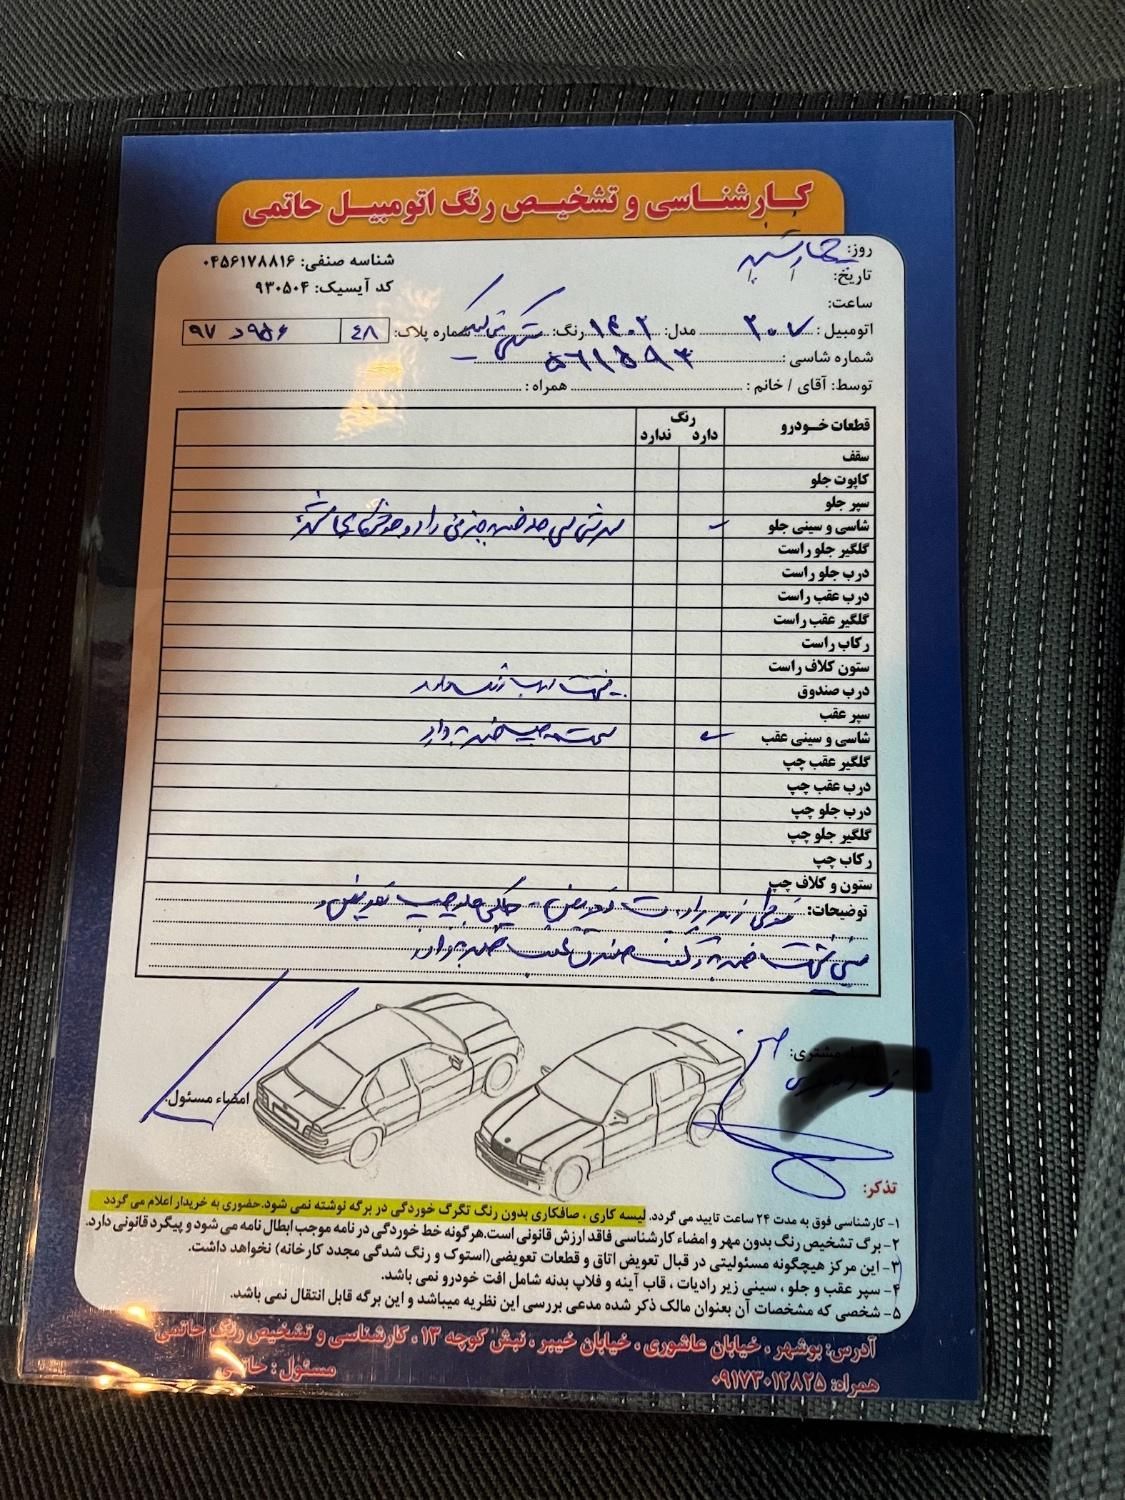 کارشناسی و تشخیص رنگ اتومبیل حاتمی
روز: چهارشنبه
شناسه صنفی: ۰۴۵۶۱۷۸۸۱۶
تاریخ:
کد آیسیک: ۹۳۰۵۰۴
ساعت:
اتومبیل: ۲۰۷ مدل: ۱۴۰۲ رنگ: شماره پلاک: ۴۸
شماره شاسی: ۵۶۱۵۹۳
توسط: آقای / خانم: همراه:
قطعات خودرو رنگ دارد ندارد
سقف
کاپوت جلو
سپر جلو
شاسی و سینی جلو
گلگیر جلو راست
درب جلو راست
درب عقب راست
گلگیر عقب راست
رکاب راست
ستون کلاف راست
درب صندوق
سپر عقب
شاسی و سینی عقب
گلگیر عقب چپ
درب عقب چپ
درب جلو چپ
گلگیر جلو چپ
رکاب چپ
ستون و کلاف چپ
توضیحات: تعویض جلو چپ تعویض
ضربه صندوق عقب ضربه دارد
مشتری:
امضاء مسئول:
تذکر:
۱- کارشناسی فوق به مدت ۲۴ ساعت تایید می گردد. لیسه کاری ، صافکاری بدون رنگ تگرگ خوردگی در برگه نوشته نمی شود.حضوری به خریدار اعلام می گردد
۲- برگ تشخیص رنگ بدون مهر و امضاء کارشناسی فاقد ارزش قانونی است.هرگونه خط خوردگی در نامه موجب ابطال نامه می شود و پیگرد قانونی دارد.
۳- این مرکز هیچگونه مسئولیتی در قبال تعویض اتاق و قطعات تعویضی(استوک و رنگ شدگی مجدد کارخانه) نخواهد داشت.
۴- سپر عقب و جلو ، سینی زیر رادیات ، قاب آینه و فلاپ بدنه شامل افت خودرو نمی باشد.
۵- شخصی که مشخصات آن بعنوان مالک ذکر شده مدعی بررسی این نظریه میباشد و این برگه قابل انتقال نمی باشد.
آدرس: بوشهر ، خیابان عاشوری ، خیابان خیبر ، نبش کوچه ۱۳ ، کارشناسی و تشخیص رنگ حاتمی
همراه: ۰۹۱۷۳۰۱۲۸۲۵ مسئول: حاتمی